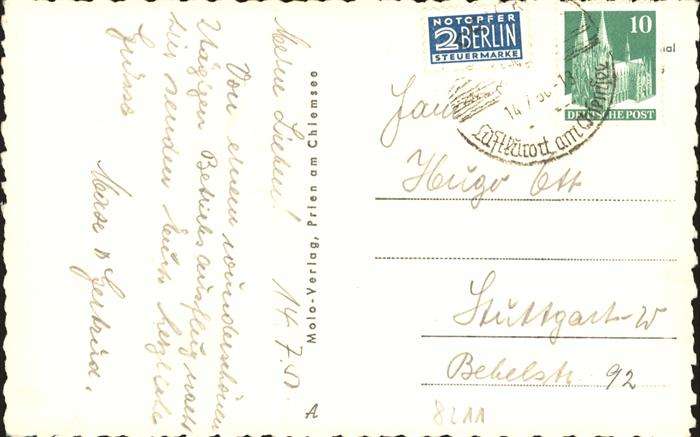 Meine Lieben! 14.7.50
Von einem wunderschönen
tägigen Betriebsausflug nach
senden Euch herzliche
Grüsse
Gertrud.
Molo-Verlag, Prien am Chiemsee
A
NOTOPFER
2 BERLIN
STEUERMARKE
10
DEUTSCHE POST
14.7.50
Luftkurort am Chiemsee
Fam
Hugo Ott
Stuttgart-W
Bebelstr 92
8211